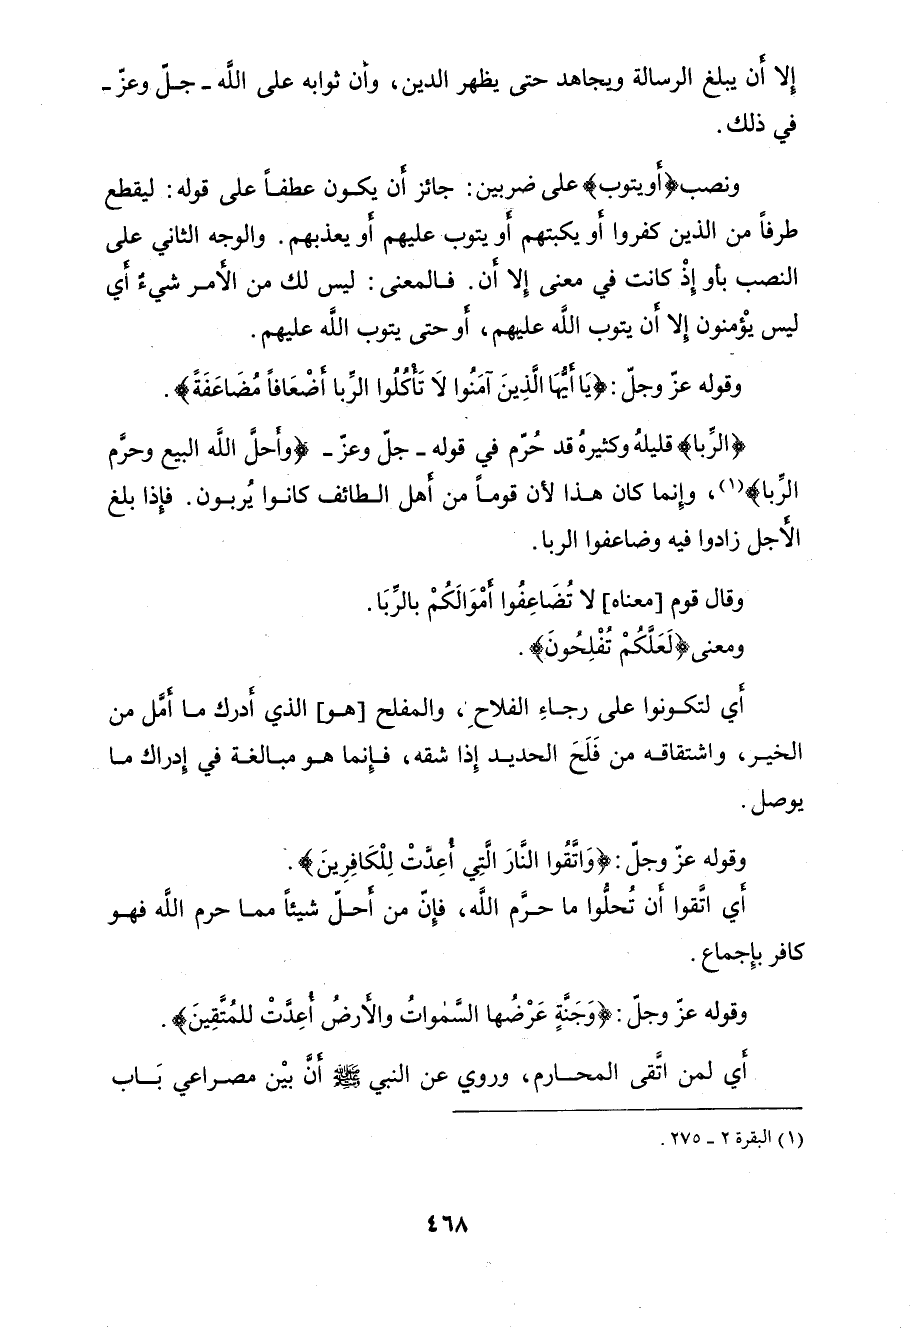 إلا أَن يبلغ الرسالة ويجاهد حتى يظهر الدين، وأن ثوابه على اللَّه ـ جـلّ وعزّ ـ
في ذلك.
ونصب ﴿أَو يتوب﴾ على ضربين: جائز أَن يكـون عطفـاً على قوله: ليقطع
طرفاً من الذين كفروا أَو يكبتهم أَو يتوب عليهم أَو يعذبهم. والوجه الثاني على
النصب بأو إِذْ كانت في معنى إلا أَن. فـالمعنى: ليس لك من الأَمـر شيءٌ أَي
ليس يؤْمنون إلا أَن يتوب اللَّه عليهم، أَو حتى يتوب اللَّه عليهم.
وقوله عزّ وجلّ: ﴿يَا أَيُّهَا الَّذِينَ آمَنُوا لَا تَأْكُلُوا الرِّبا أَضْعَافاً مُضَاعَفَةً﴾.
﴿الرِّبا﴾ قليلهُ وكثيرهُ قد حُرّم في قوله ـ جلّ وعزّ ـ ﴿وأَحلَّ اللَّه البيع وحرَّم
الرِّبا﴾(١)، وإنما كان هـذا لأن قومـاً من أَهل الـطائف كانـوا يُربـون. فإِذا بلغ
الأَجل زادوا فيه وضاعفوا الربا.
وقال قوم [معناه] لا تُضَاعِفُوا أَمْوَالَكُمْ بالرِّبَا.
ومعنى ﴿لَعَلَّكُمْ تُفْلِحُونَ﴾.
أَي لتكـونوا على رجـاءِ الفلاح، والمفلح [هـو] الذي أَدرك مـا أَمَّل من
الخيـر، واشتقاقـه من فَلَحَ الحديـد إِذا شقه، فـإنما هـو مبـالغـة في إدراك مـا
يوصل.
وقوله عزّ وجلّ: ﴿وَاتَّقُوا النَّارَ الَّتِي أُعِدَّتْ لِلْكَافِرِينَ﴾.
أَي اتَّقوا أَن تُحلُّوا ما حـرَّم اللَّه، فإنّ من أَحـلّ شيئاً ممـا حرم اللَّه فهـو
كافر بإِجماع.
وقوله عزّ وجلّ: ﴿وَجَنَّةٍ عَرْضُها السَّمٰواتُ والأَرضُ أُعِدَّتْ للمُتَّقِينَ﴾.
أَي لمن اتَّقى المحـارم، وروي عن النبي ﷺ أَنَّ بيْن مصـراعي بَـاب
(١) البقرة ٢ ـ ٢٧٥.
٤٦٨